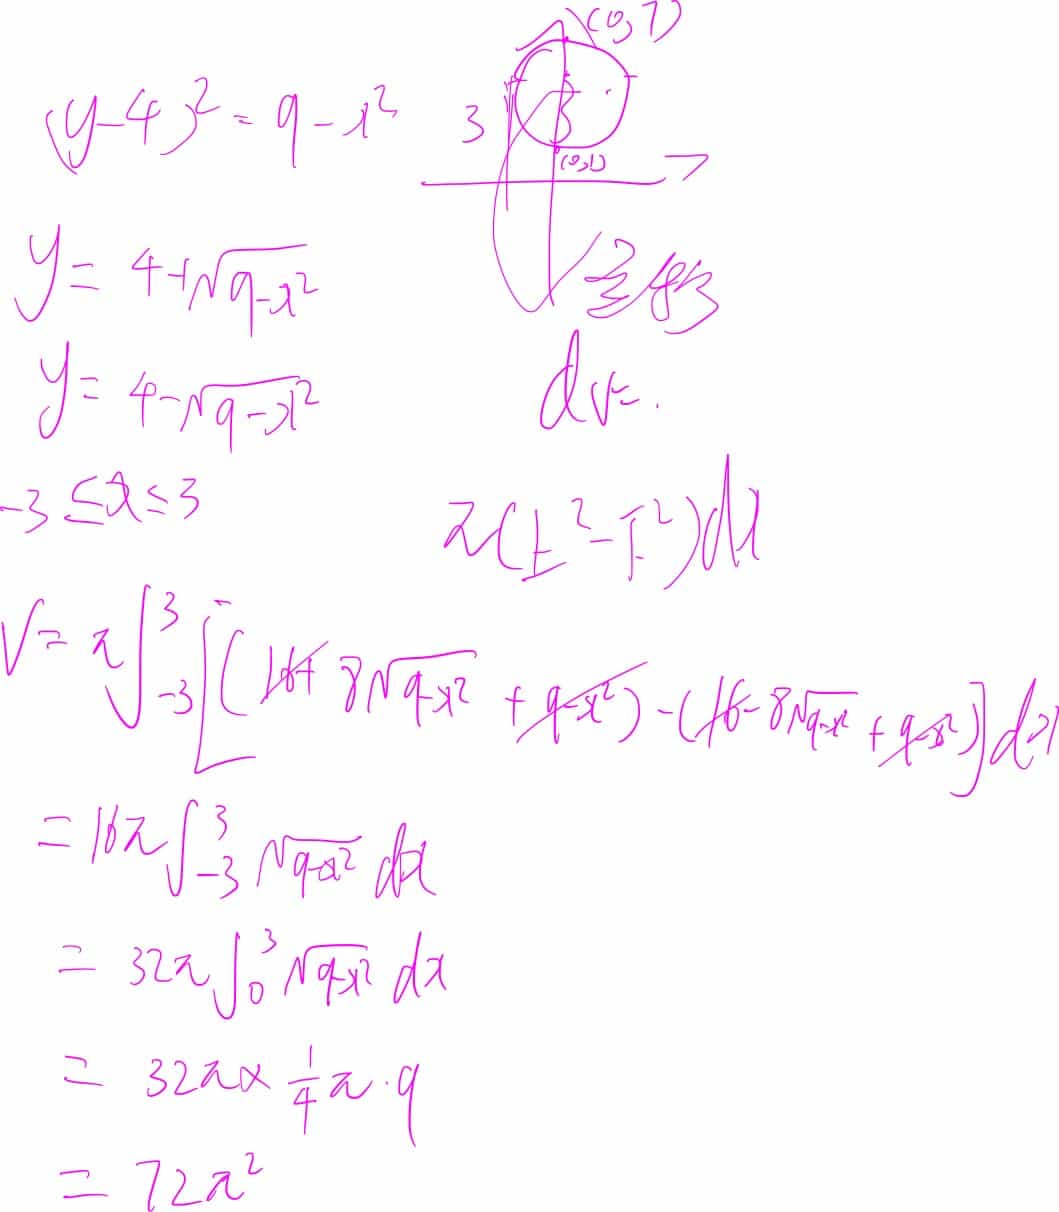 (0, 7)
(y-4)² = 9 - x²
3
3
(0,1)
y = 4+√(9-x²)
y = 4-√(9-x²)
dv=.
-3 ≤ x ≤ 3
π(上²-下²)dx
V = π∫₋₃³[(16+8√(9-x²) + 9-x²) - (16-8√(9-x²) + 9-x²)]dx
= 16π∫₋₃³ √(9-x²) dx
= 32π∫₀³ √(9-x²) dx
= 32π × 1/4 π · 9
= 72π²